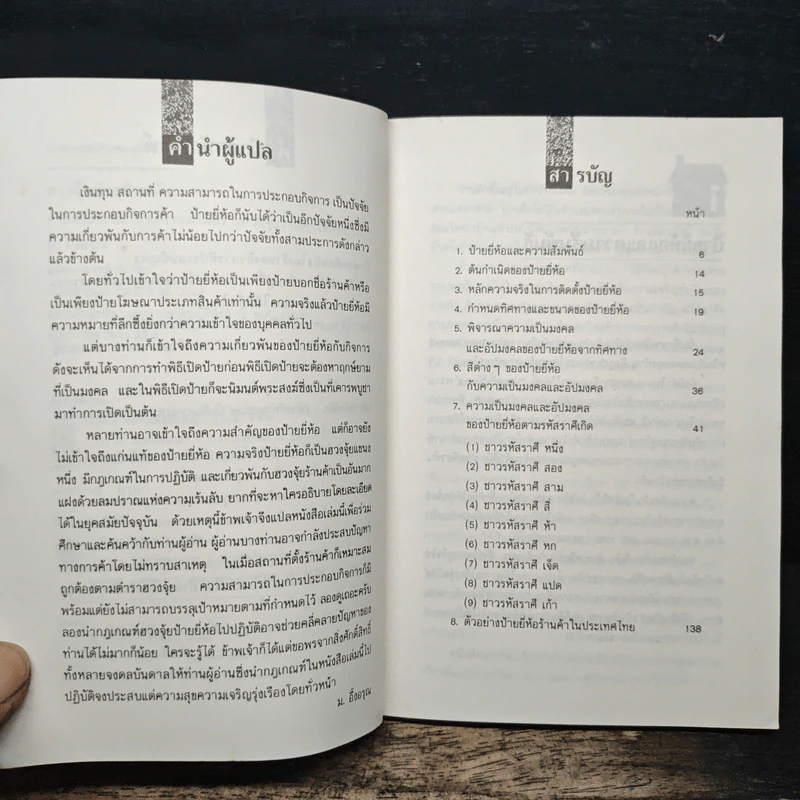 คำนำผู้แปล
เงินทุน สถานที่ ความสามารถในการประกอบกิจการ เป็นปัจจัย
ในการประกอบกิจการค้า ป้ายยี่ห้อก็นับได้ว่าเป็นอีกปัจจัยหนึ่งซึ่งมี
ความเกี่ยวพันกับการค้าไม่น้อยไปกว่าปัจจัยทั้งสามประการดังกล่าว
แล้วข้างต้น
โดยทั่วไปเข้าใจว่าป้ายยี่ห้อเป็นเพียงป้ายบอกชื่อร้านค้าหรือ
เป็นเพียงป้ายโฆษณาประเภทสินค้าเท่านั้น ความจริงแล้วป้ายยี่ห้อมี
ความหมายที่ลึกซึ้งยิ่งกว่าความเข้าใจของบุคคลทั่วไป
แต่บางท่านก็เข้าใจถึงความเกี่ยวพันของป้ายยี่ห้อกับกิจการ
ดังจะเห็นได้จากการทำพิธีเปิดป้ายก่อนพิธีเปิดป้ายจะต้องหาฤกษ์ยาม
ที่เป็นมงคล และในพิธีเปิดป้ายก็จะนิมนต์พระสงฆ์ซึ่งที่เคารพบูชา
มาทำการเปิดเป็นต้น
หลายท่านอาจเข้าใจถึงความสำคัญของป้ายยี่ห้อ แต่ก็อาจยัง
ไม่เข้าใจถึงแก่นแท้ของป้ายยี่ห้อ ความจริงป้ายยี่ห้อก็เป็นฮวงจุ้ยแขนง
หนึ่ง มีกฎเกณฑ์ในการปฏิบัติ และเกี่ยวพันกับฮวงจุ้ยร้านค้าเป็นอันมาก
แฝงด้วยลมปราณแห่งความเร้นลับ ยากที่จะหาใครอธิบายโดยละเอียด
ได้ในยุคสมัยปัจจุบัน ด้วยเหตุนี้ข้าพเจ้าจึงแปลหนังสือเล่มนี้เพื่อร่วม
ศึกษาและค้นคว้ากับท่านผู้อ่าน ผู้อ่านบางท่านอาจกำลังประสบปัญหา
ทางการค้าโดยไม่ทราบสาเหตุ ในเมื่อสถานที่ตั้งร้านค้าก็เหมาะสม
ถูกต้องตามตำราฮวงจุ้ย ความสามารถในการประกอบกิจการก็มี
พร้อมแต่ยังไม่สามารถบรรลุเป้าหมายตามที่กำหนดไว้ ลองดูเถอะครับ
ลองนำกฎเกณฑ์ฮวงจุ้ยป้ายยี่ห้อไปปฏิบัติอาจช่วยคลี่คลายปัญหาของ
ท่านได้ไม่มากก็น้อย ใครจะรู้ได้ ข้าพเจ้าก็ได้แต่ขอพรจากสิ่งศักดิ์สิทธิ์
ทั้งหลายจงดลบันดาลให้ท่านผู้อ่านซึ่งนำกฎเกณฑ์ในหนังสือเล่มนี้ไป
ปฏิบัติจงประสบแต่ความสุขความเจริญรุ่งเรืองโดยทั่วหน้า
ม. อึ้งอรุณ
สารบัญ
หน้า
1. ป้ายยี่ห้อและความสัมพันธ์ 6
2. ต้นกำเนิดของป้ายยี่ห้อ 14
3. หลักความจริงในการติดตั้งป้ายยี่ห้อ 15
4. กำหนดทิศทางและขนาดของป้ายยี่ห้อ 19
5. พิจารณาความเป็นมงคล
และอัปมงคลของป้ายยี่ห้อจากทิศทาง 24
6. สีต่าง ๆ ของป้ายยี่ห้อ
กับความเป็นมงคลและอัปมงคล 36
7. ความเป็นมงคลและอัปมงคล
ของป้ายยี่ห้อตามรหัสราศีเกิด 41
(1) ชาวรหัสราศี หนึ่ง
(2) ชาวรหัสราศี สอง
(3) ชาวรหัสราศี สาม
(4) ชาวรหัสราศี สี่
(5) ชาวรหัสราศี ห้า
(6) ชาวรหัสราศี หก
(7) ชาวรหัสราศี เจ็ด
(8) ชาวรหัสราศี แปด
(9) ชาวรหัสราศี เก้า
8. ตัวอย่างป้ายยี่ห้อร้านค้าในประเทศไทย 138